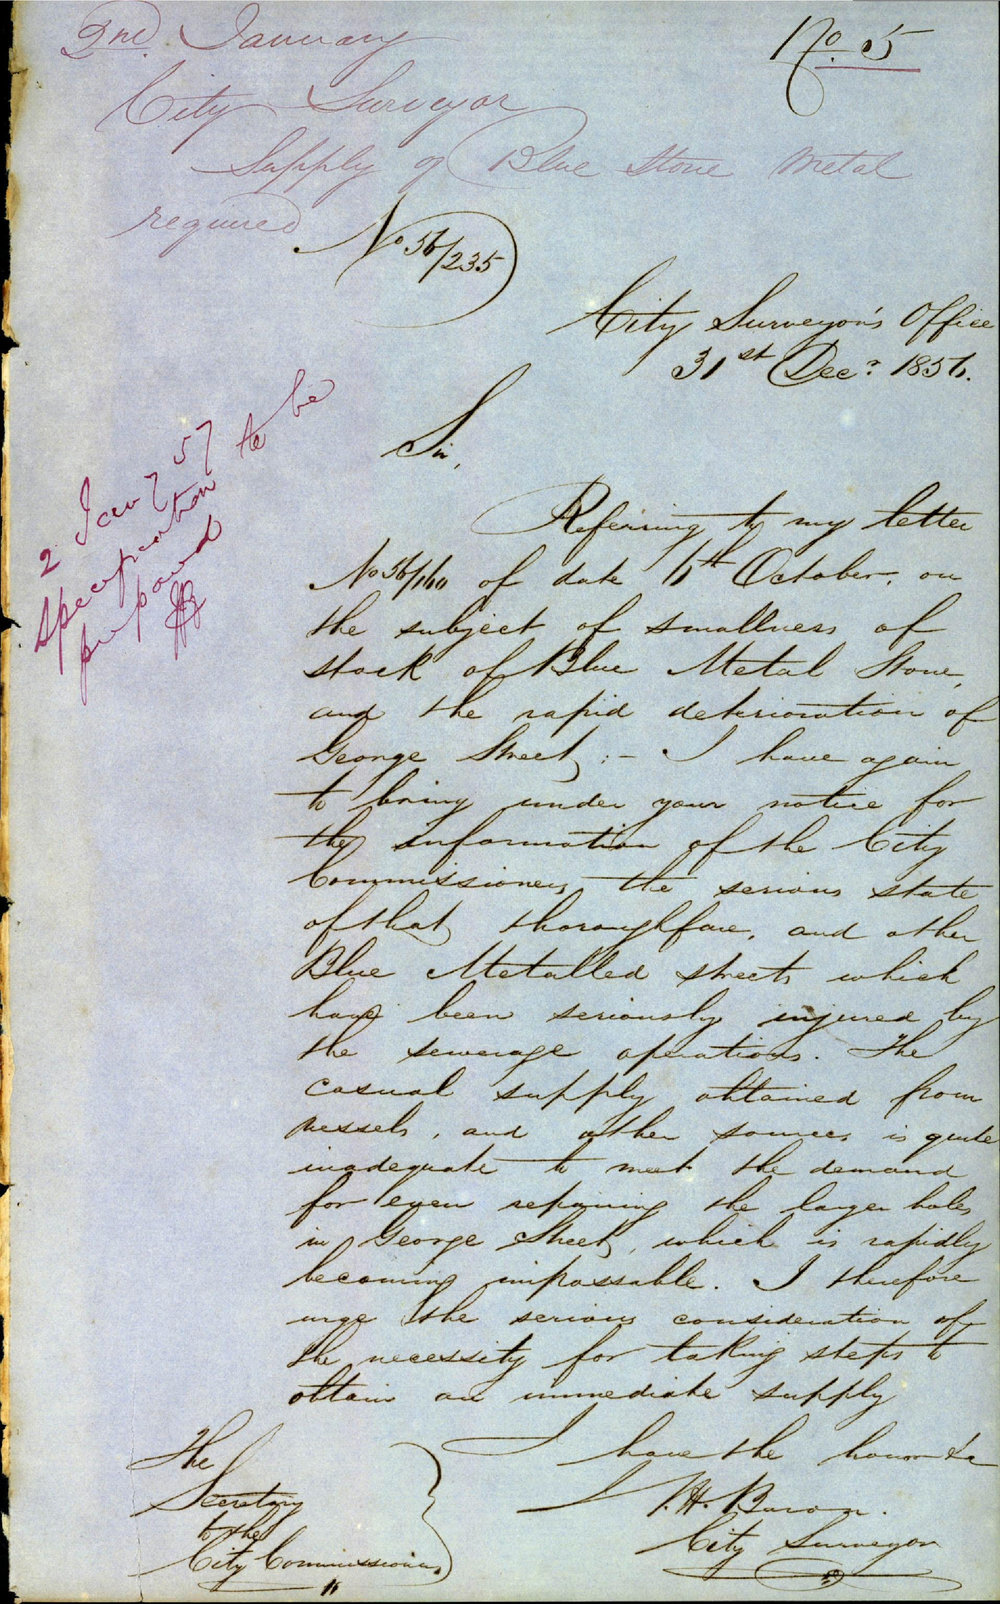 2nd January
No. 5
City Surveyor
Supply of Blue Stone Metal
required
No 56/235
City Surveyor's Office
31st Decr 1856.
Sir,
2 Jany 57
specification to be
prepared
Referring to my letter
No 56/160 of date 16th October, on
the subject of smallness of
stock of Blue Metal Stone,
and the rapid deterioration of
George Street; - I have again
to bring under your notice for
the information of the City
Commissioners, the serious state
of that thoroughfare, and other
Blue Metalled streets which
have been seriously injured by
the sewerage operations. The
casual supply obtained from
vessels, and other sources is quite
inadequate to meet the demand
for even repairing the larger holes
in George Street, which is rapidly
becoming impassable. I therefore
urge the serious consideration of
the necessity for taking steps to
obtain an immediate supply
I have the honor &c
City Surveyor
The
Secretary
to the
City Commissioners